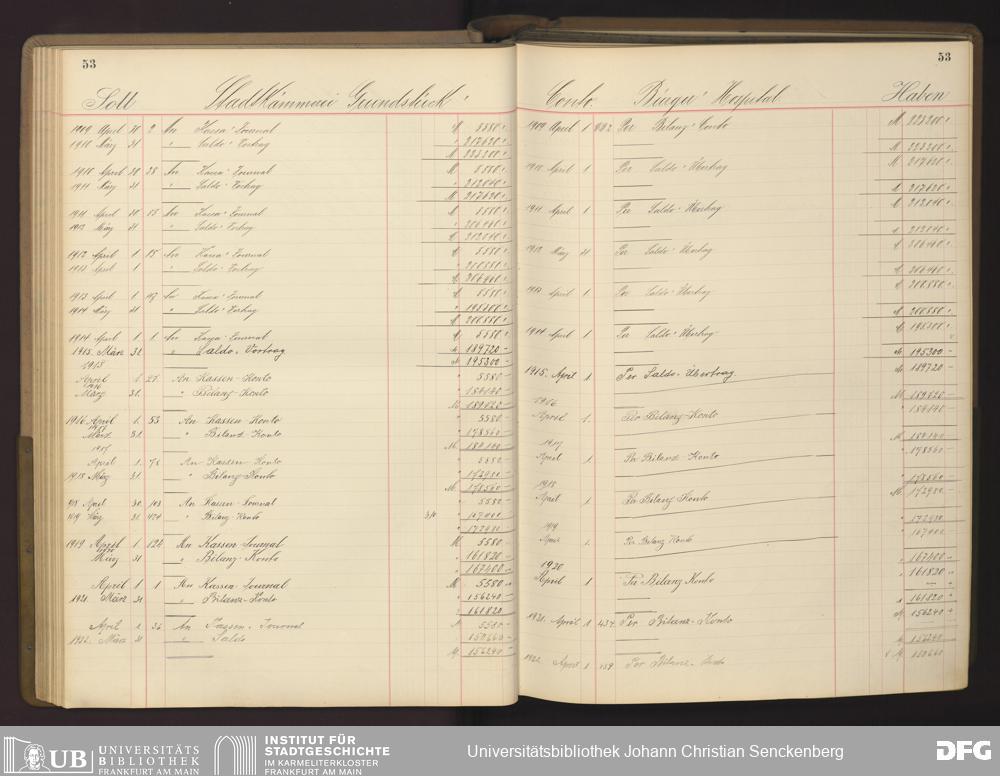 53
Soll Stadtkämmerei Grundstück
1909 April 30 2 An Kassa-Journal M 5580
1910 März 31 " Saldo-Vortrag 217620
M 223200
1910 April 30 28 An Kassa-Journal M 5580
1911 März 31 " Saldo-Vortrag 212040
M 217620
1911 April 15 An Kassa-Journal M 5580
1912 März 31 " Saldo-Vortrag 206460
212040
1912 April 1 15 An Kassa-Journal 5580
April 1 " Saldo-Vortrag 200880
206460
1913 April 1 An Kassa-Journal 5580
1914 März 31 " Saldo-Vortrag 195300
200880
1914 April 1 1 An Kassa-Journal 5580
1915 März 31 " Saldo-Vortrag 189720 –
195300 –
1915
April 1 27 An Kassen-Konto 5580 –
März 31 " Bilanz-Konto 184140 –
1916 April 1. 53 An Kassen-Konto 5580 –
März 31. " Bilanz Konto 178560 –
M 184140 –
1917
April 1. 78 An Kassen-Konto 5580 –
1918 März 31. " Bilanz-Konto 172980 –
M 178560 –
April 30 103 An Kassen-Journal 5580 –
März 31 424 " Bilanz-Konto 167400 –
172980 –
1919 April 1. 124 An Kassen-Journal M 5580 –
März 31 " Bilanz-Konto 161820 –
167400 –
April 1 1 An Kassen-Journal M 5580
1921 März 31 " Bilanz-Konto 156240 –
161820
April 36 An Kassen-Journal 5580 –
1922 März 31 " Saldo 150660 –
M 156240 –
53
Conto Bürger Hospital Haben
1909 April 1 Per Bilanz-Conto M 223200
M 223200
1910 April 1 Per Saldo-Übertrag M 217620
217620
1911 April 1 Per Saldo-Übertrag 212040
212040
1912 März 31 Per Saldo-Übertrag 206460
206460
1913 April 1 Per Saldo-Übertrag 200880
200880
1914 April 1 Per Saldo-Übertrag 195300
195300 –
1915 April 1 Per Saldo-Übertrag 189720 –
1916
April 1. Per Bilanz-Konto 184140 –
M 184140 –
1917
April 1 Per Bilanz Konto 178560 –
178560 –
1918
April 1 Per Bilanz Konto M 172980 –
172980 –
Per Bilanz Konto 167400 –
167400 –
1920
April 1 Per Bilanz Konto 161820
161820
1921 April 1 434 Per Bilanz-Konto M 156240
156240
1922 April 1 459 Per Bilanz-Konto M 150660
UB UNIVERSITÄTS
BIBLIOTHEK
FRANKFURT AM MAIN
INSTITUT FÜR
STADTGESCHICHTE
IM KARMELITERKLOSTER
FRANKFURT AM MAIN
Universitätsbibliothek Johann Christian Senckenberg
DFG